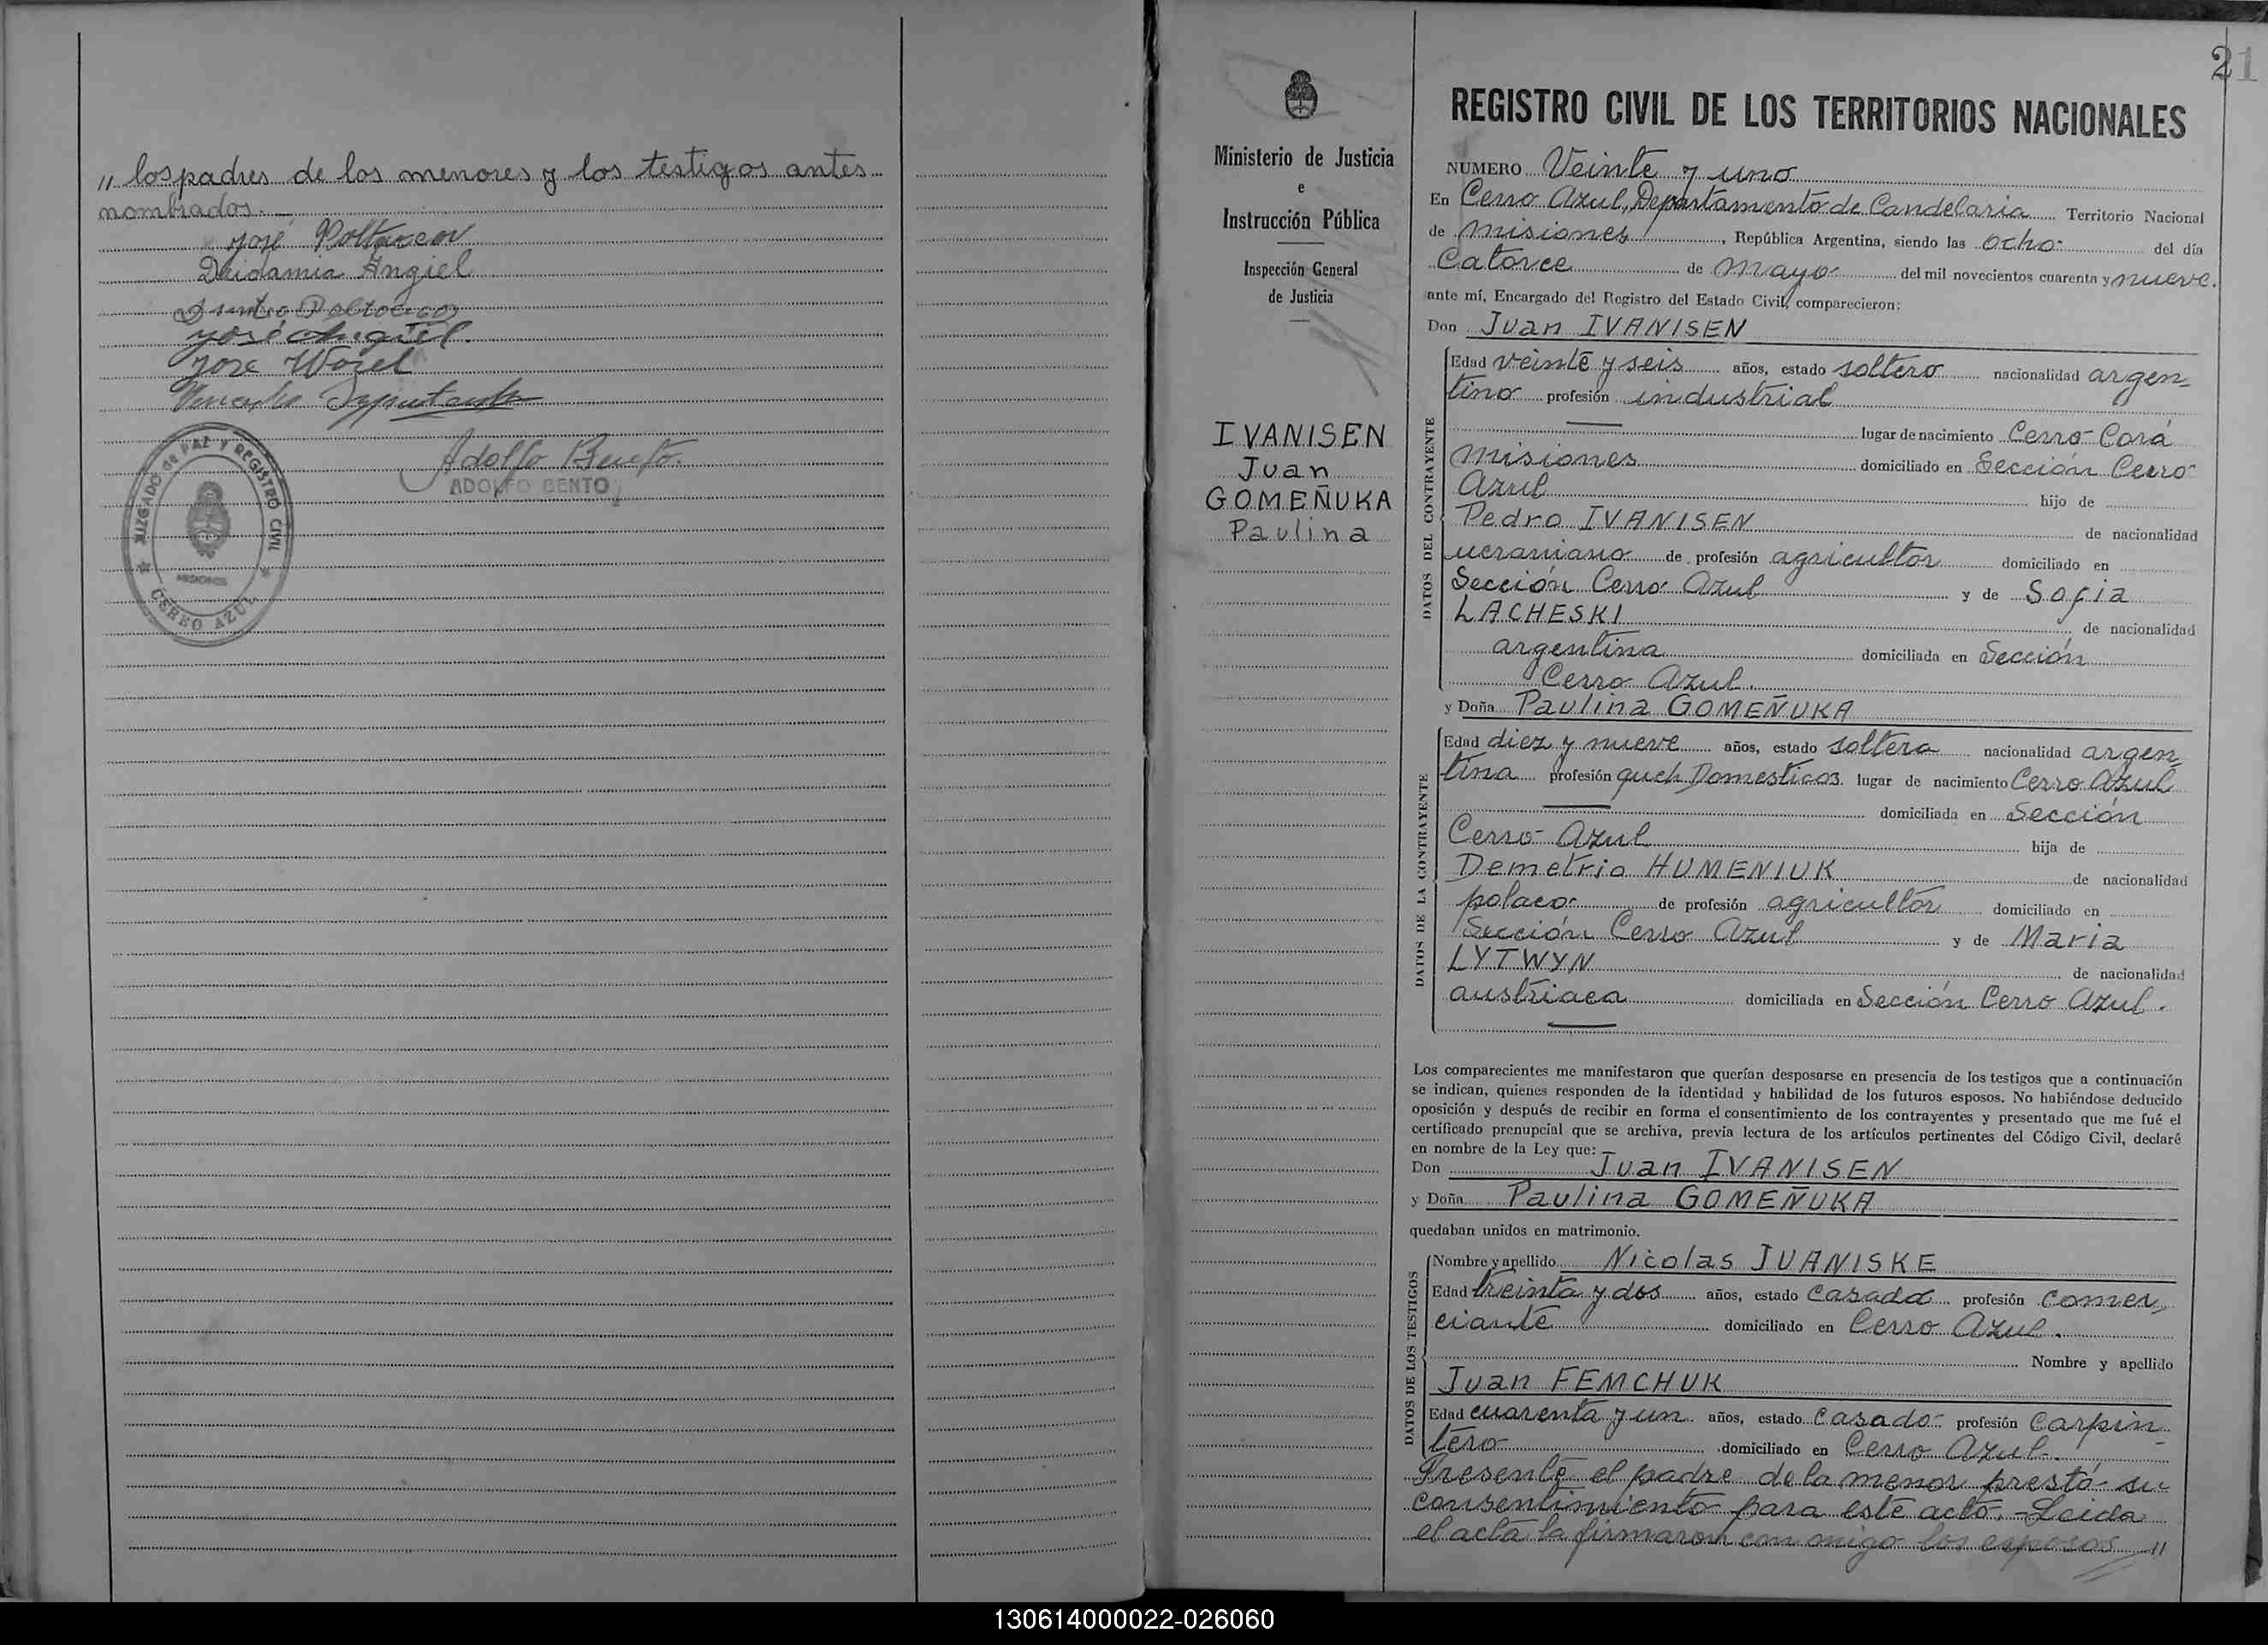 " los padres de los menores y los testigos antes
nombrados.—
José
Deidamia Angiel
José Angiel.
Jose Wozel
Adolfo Bento.
ADOLFO BENTO
JUZGADO de PAZ Y REGISTRO CIVIL
MISIONES
CERRO AZUL
21
Ministerio de Justicia
e
Instrucción Pública
Inspección General
de Justicia
IVANISEN
Juan
GOMEÑUKA
Paulina
REGISTRO CIVIL DE LOS TERRITORIOS NACIONALES
NUMERO Veinte y uno
En Cerro Azul, Departamento de Candelaria Territorio Nacional
de Misiones, República Argentina, siendo las ocho del día
Catorce de Mayo del mil novecientos cuarenta y nueve.
ante mí, Encargado del Registro del Estado Civil, comparecieron:
Don Juan IVANISEN
DATOS DEL CONTRAYENTE
Edad veinte y seis años, estado soltero nacionalidad argen-
tino profesión industrial
lugar de nacimiento Cerro Corá
Misiones domiciliado en Sección Cerro
Azul hijo de
Pedro IVANISEN de nacionalidad
ucraniano de profesión agricultor domiciliado en
Sección Cerro Azul y de Sofia
LACHESKI de nacionalidad
argentina domiciliada en Sección
Cerro Azul.
y Doña Paulina GOMEÑUKA
DATOS DE LA CONTRAYENTE
Edad diez y nueve años, estado soltera nacionalidad argen-
tina profesión queh. Domesticos lugar de nacimiento Cerro Azul
domiciliada en Sección
Cerro Azul hija de
Demetrio HUMENIUK de nacionalidad
polaco de profesión agricultor domiciliado en
Sección Cerro Azul y de Maria
LYTWYN de nacionalidad
austriaca domiciliada en Sección Cerro Azul.
Los comparecientes me manifestaron que querían desposarse en presencia de los testigos que a continuación
se indican, quienes responden de la identidad y habilidad de los futuros esposos. No habiéndose deducido
oposición y después de recibir en forma el consentimiento de los contrayentes y presentado que me fué el
certificado prenupcial que se archiva, previa lectura de los artículos pertinentes del Código Civil, declaré
en nombre de la Ley que:
Don Juan IVANISEN
y Doña Paulina GOMEÑUKA
quedaban unidos en matrimonio.
DATOS DE LOS TESTIGOS
Nombre y apellido Nicolas JUANISKE
Edad treinta y dos años, estado casado profesión comer-
ciante domiciliado en Cerro Azul.
Nombre y apellido
Juan FEMCHUK
Edad cuarenta y un años, estado casado profesión carpin-
tero domiciliado en Cerro Azul.
Presente el padre de la menor prestó su
consentimiento para este acto.-Leida
el acta la firmaron conmigo los esposos "
130614000022-026060